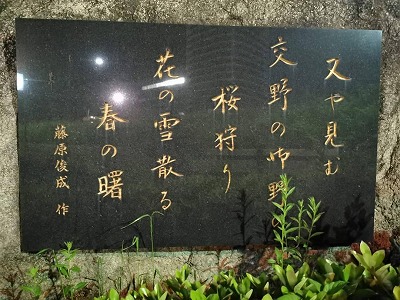 又や見む
交野の御野
桜狩り
花の雪散る
春の曙
藤原俊成 作